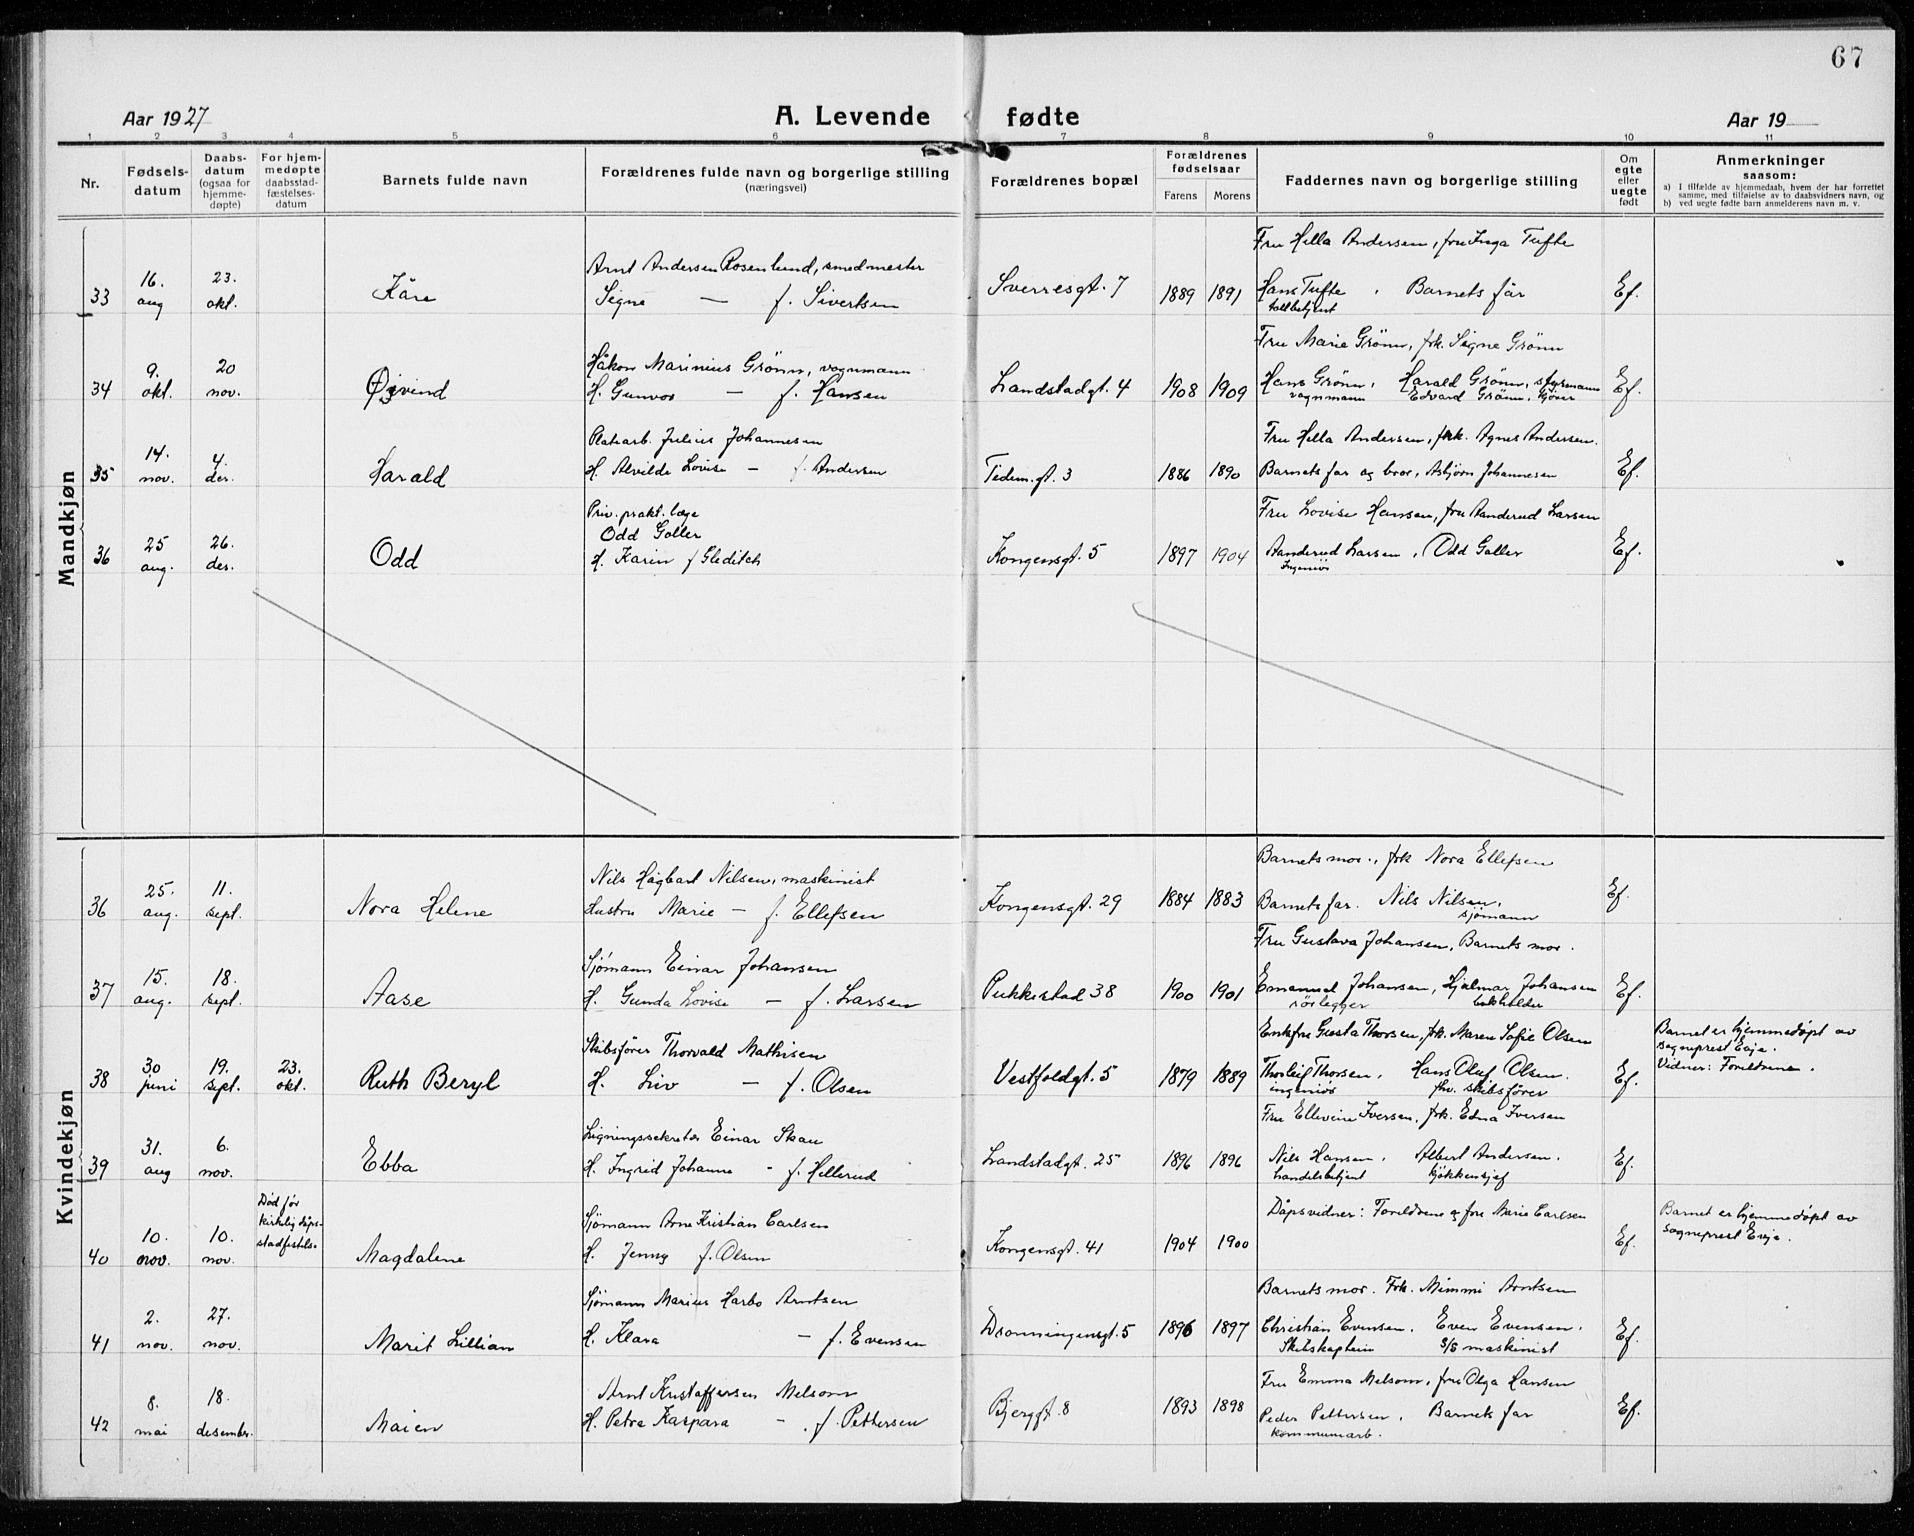 67
Aar 1927 A. Levende fødte Aar 19
1 2 3 4 5 6 7 8 9 10 11
Nr. Fødselsdatum Daabsdatum (ogsaa for hjemmedøpte) For hjemmedøpte daabsstadfæstelsesdatum Barnets fulde navn Forældrenes fulde navn og borgerlige stilling (næringsvei) Forældrenes bopæl Forældrenes fødselsaar Farens Morens Faddernes navn og borgerlige stilling Om egte eller uegte født Anmerkninger saasom:
a) I tilfælde av hjemmedaab, hvem der har forrettet samme, med tilføielse av to daabsvidners navn, og
b) ved uegte fødte barn anmelderens navn m. v.
Mandkjøn
Fru Hella Andersen, fru Inga Tufte
Arnt Andersen Rosenlund, smedmester
33 16. aug 23. okt. Kåre Signe — f. Sivertsen Sverresgt. 7 1889 1891 Hans Tufte, Barnets far Ef.
tollbetjent
Fru Marie Grönn, frk. Signe Grönn
Håkon Marinius Grönn, vognmann
34 9. okt. 20 nov. Øivind H. Gunvor — f. Hansen Landstadgt. 4 1908 1909 Hans Grönn, Harald Grönn, styrmann Ef.
vognmann Edvard Grönn, kjører
Fru Hella Andersen, frk. Agnes Andersen.
Platearb. Julius Johannesen
35 14. nov. 4. des. Harald H. Alvilde Lovise — f. Andersen Tidem.gt. 3 1886 1890 Barnets far og bror, Asbjørn Johannesen Ef.
Fru Lovise Hansen, fru Aanderud Larsen
Priv. prakt. læge
Odd Goller
36 25 aug. 26. des. Odd H. Karin f Gleditch Kongensgt. 5 1897 1904 Aanderud Larsen, Odd Goller Ef.
Ingeniør
Kvindekjøn
Barnets mor., frk Nora Ellefsen
Nils Hagbart Nilsen, maskinist
36 25. aug. 11. sept. Nora Helene Hustru Marie — f. Ellefsen Kongensgt. 29 1884 1883 Barnets far. Nils Nilsen, Ef.
sjømann
Fru Gustava Johansen, Barnets mor.
Sjømann Einar Johansen
37 15. aug. 18. sept. Aase H. Gunda Lovise — f. Larsen Pukkestad 38 1900 1901 Emanuel Johansen, Hjalmar Johansen Ef.
rørlegger bokholder
Enkefru Gusta Thorsen, frk. Maren Sofie Olsen Barnet er hjemmedøpt av
Skibsfører Thorvald Mathisen sogneprest Evje.
38 30 juni 19. sept. 23. okt. Ruth Beryl H. Liv — f. Olsen Vestfoldgt. 5 1879 1889 Thorleif Thorsen, Hans Oluf Olsen. Ef. Vidner: Foreldrene.
ingeniør fhv. skibsfører
Fru Elleveine Iversen, frk. Edna Iversen
Ligningssekretær Einar Skau
39 31. aug 6. nov. Ebba H. Ingrid Johanne - f. Hillerud Landstadgt. 25 1896 1896 Nils Hansen, Albert Andersen. Ef.
handelsbetjent kjøkkensjef
Død før kirkelig dåpsstadfestelse
Sjømann Arne Kristian Carlsen Dåpsvidner: Foreldrene og fru Marie Carlsen Barnet er hjemmedøpt av
40 10. nov. 10. nov. Magdalene H. Jenny f. Olsen Kongensgt. 41 1904 1900 Ef. sogneprest Evje.
Barnets mor. Frk. Mimmi Arntsen
Sjømann Marius Harbo Arntsen
41 2. nov. 27. nov. Marit Lillian H. Klara — f. Evensen Dronningensgt. 5 1896 1897 Christian Evensen, Even Evensen. Ef.
Skibskaptein S/S maskinist
Fru Emma Melsom, fru Olga Hansen
Arnt Kristoffersen Melsom
42 8. mai 18. desember. Maien H. Petra Kaspara - f. Pettersen Bjerggt. 8 1893 1898 Peder Pettersen, Barnets far Ef.
kommunarb.